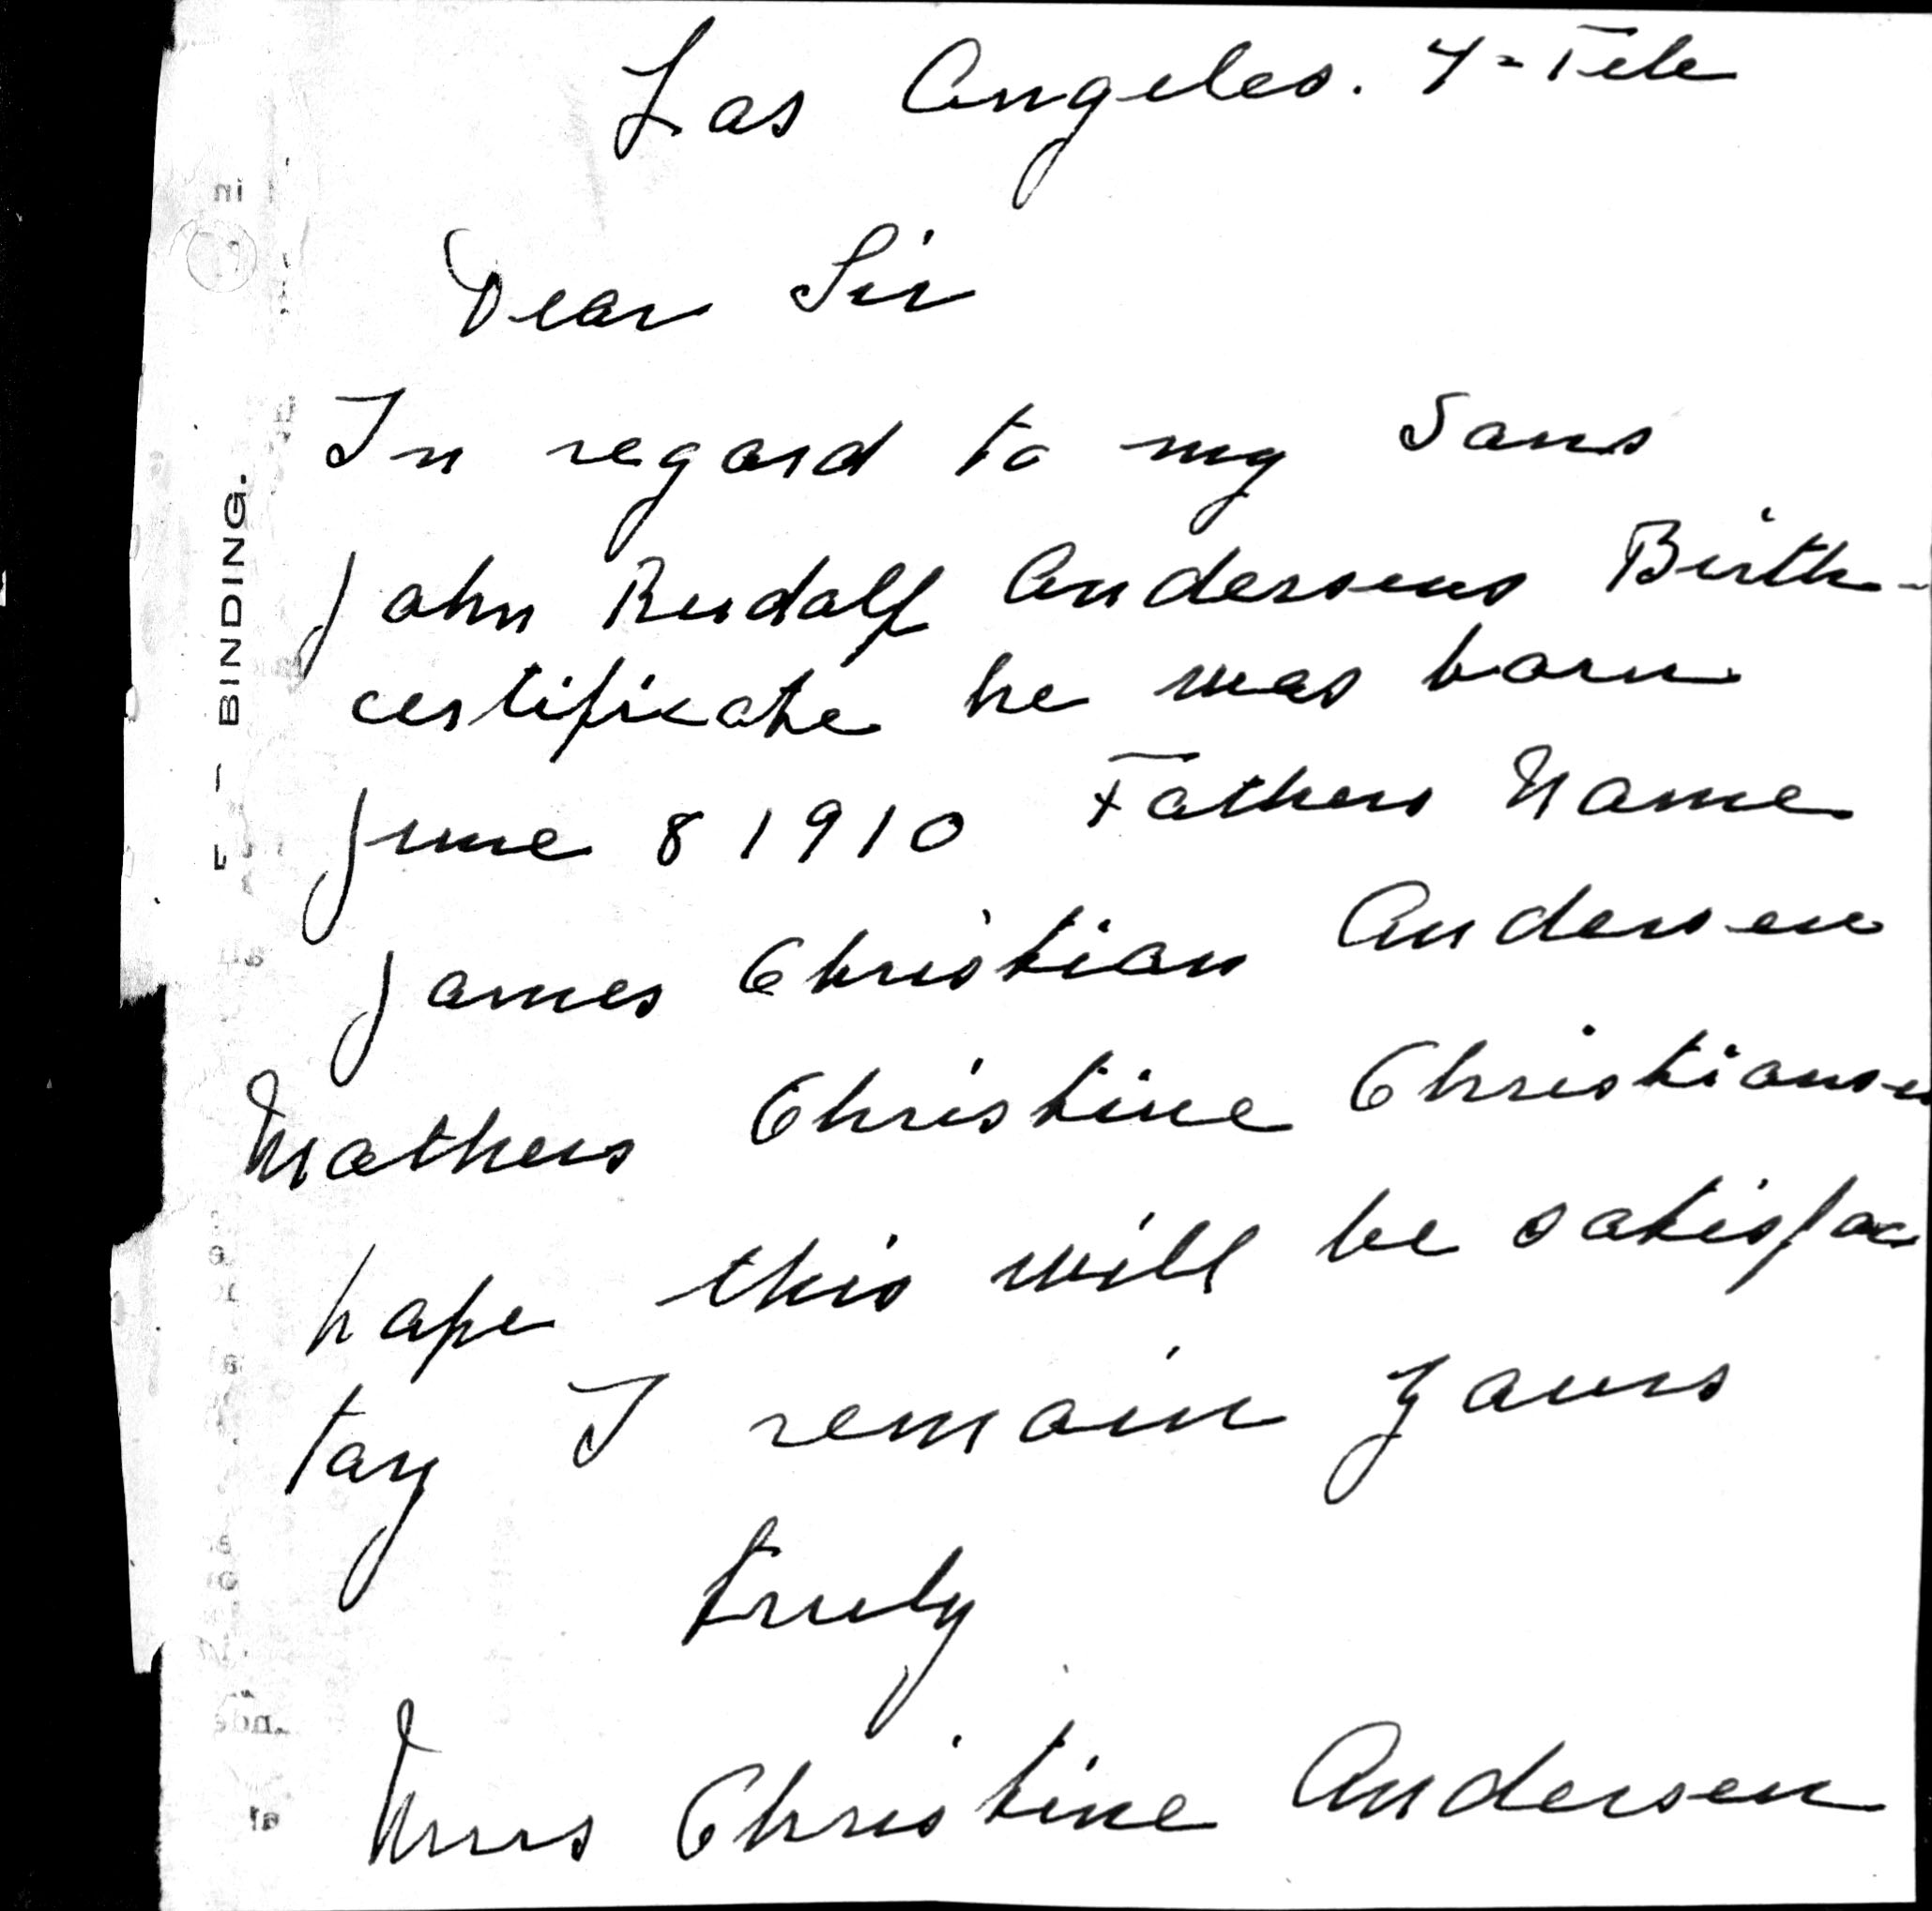 Los Angeles. 7 = Feb
Dear Sir
In regard to my Sons
John Rudolf Andersens Birth-
certificate he was born
June 8 1910 Fathers Name
James Christian Andersen
Mothers Christine Christianse
hope this will be satisfac
toy I remain yours
truly
Mrs Christine Andersen
BINDING.